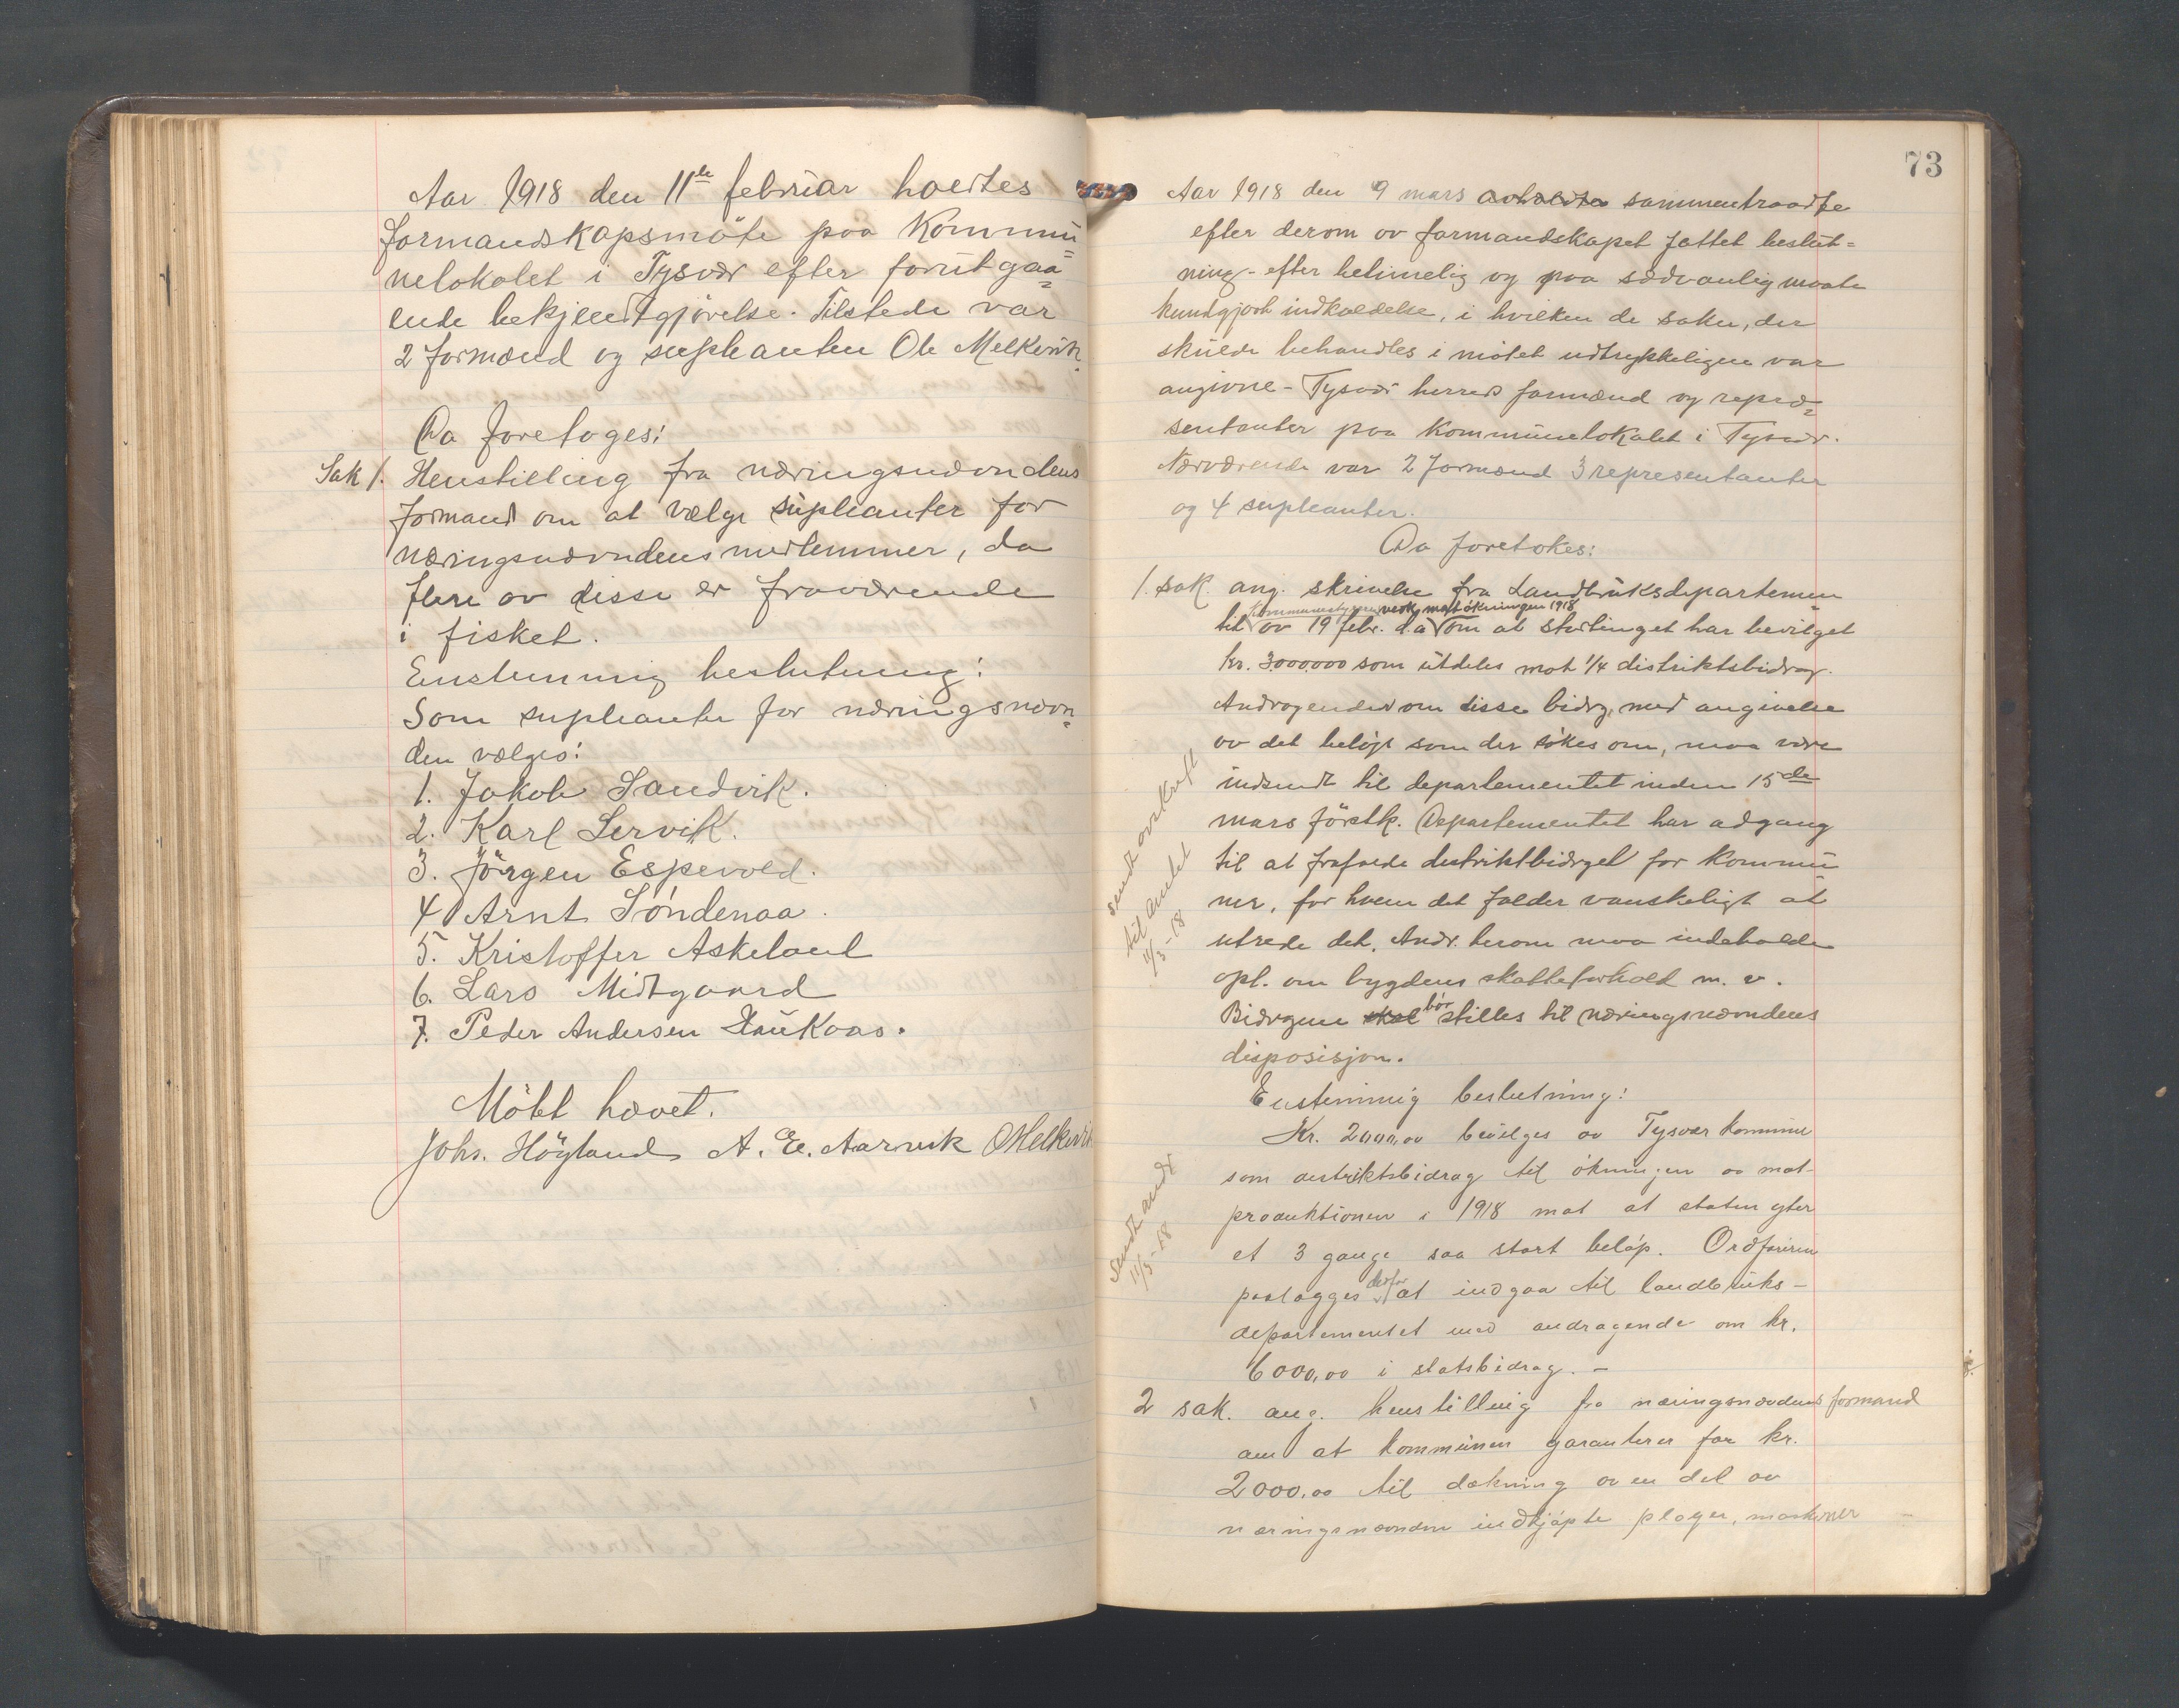 Aar 1918 den 11te februar holdtes
formandskapsmöte paa Kommu=
nelokalet i Tysvær efter forutgaa=
ende bekjendtgjörelse. Tilstede var
2 formænd og supleanten Ole Melkevik.
Da foretoges:
Sak 1. Henstilling fra næringsnævndens
formand om at vælge supleanter for
næringsnævndens medlemmer, da
flere av disse er fraværende
i fisket.
Enstemmig beslutning:
Som supleanter for næringsnævn=
den vælges:
1. Jakob Sandvik.
2. Karl Servik.
3. Jörgen Espevold.
4 Arnt Söndenaa.
5. Kristoffer Askeland
6. Lars Midtgaard
7. Peder Andersen Haukaas.
Mötet hævet.
Johs. Höyland A. E. Aarvik O Melkevik
73
Aar 1918 den 9 mars avholdtes sammentraadte
efter derom av formandskapet fattet beslut=
ning - efter betimelig og paa sædvanlig maate
kundgjort indkaldelse, i hvilken de saker, der
skulde behandles i mötet udtrykkeligen var
angivne - Tysvær herreds formænd og repræ=
sentanter paa Kommunelokalet i Tysvær.
Nærværende var 2 formænd 3 representanter
og 4 supleanter.
Da foretokes:
1. sak. ang. skrivelse fra Landbruksdepartemen=
kommunestyrene vedk. matökningen 1918
til av 19 febr. d.a om at stortinget har bevilget
kr. 3000000 som utdeles mot 1/4 distriktsbidrag.
Andragender om disse bidrg. med angivelse
av det belöp som der sökes om, maa være
indsendt til departementet inden 15de
mars förstk. Departementet har adgang
til at frafalde destriktbidrget for Kommu=
ner, for hvem det falder vanskeligt at
utrede det. Andr. herom maa indeholde
opl. om bygdens skatteforhold m. v.
Bidrgene skal bör stilles til næringsnævndens
disposisjon.
sendt avskrift
til Amtet
11/3-18
Enstemmig beslutning:
Kr. 2000,00 bevilges av Tysvær kommune
som distriktsbidrag til ökningen av mat-
produktionen i 1918 mot at staten yter
et 3 gange saa stort belöp. Ordföreren
paalægges derfor at indgaa til landbruks-
departementet med andragende om kr.
6000,00 i statsbidrag. -
sendt andr
11/3-18
2 sak. ang. henstilling fra næringsnævdens formand
om at kommunen garanterer for kr.
2000,00 til dækning av en del av
næringsnævnden indkjöpte ploger, maskiner